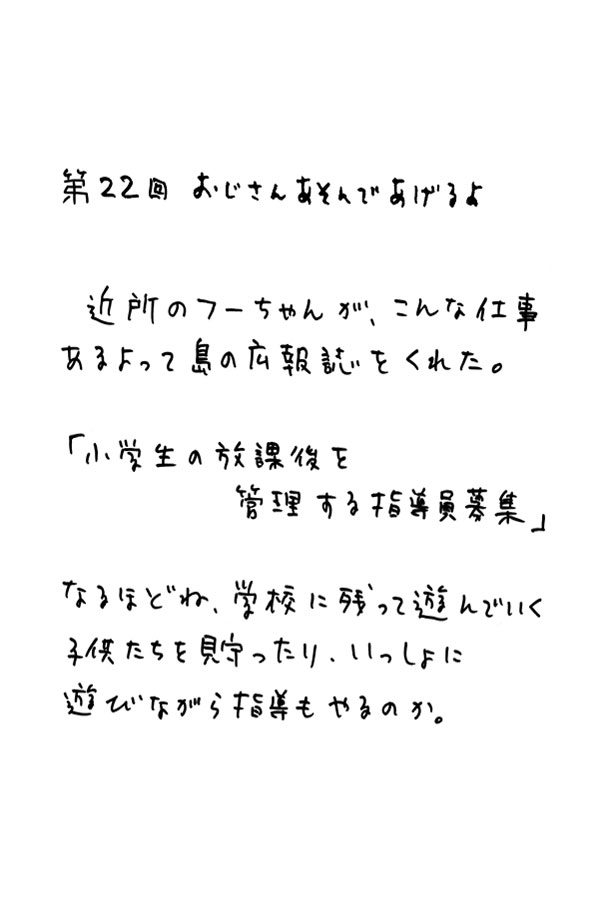 第22回 おじさんあそんであげるよ
近所のフーちゃんが、こんな仕事
あるよって島の広報誌をくれた。
「小学生の放課後を
管理する指導員募集」
なるほどね、学校に残って遊んでいく
子供たちを見守ったり、いっしょに
遊びながら指導もやるのか。